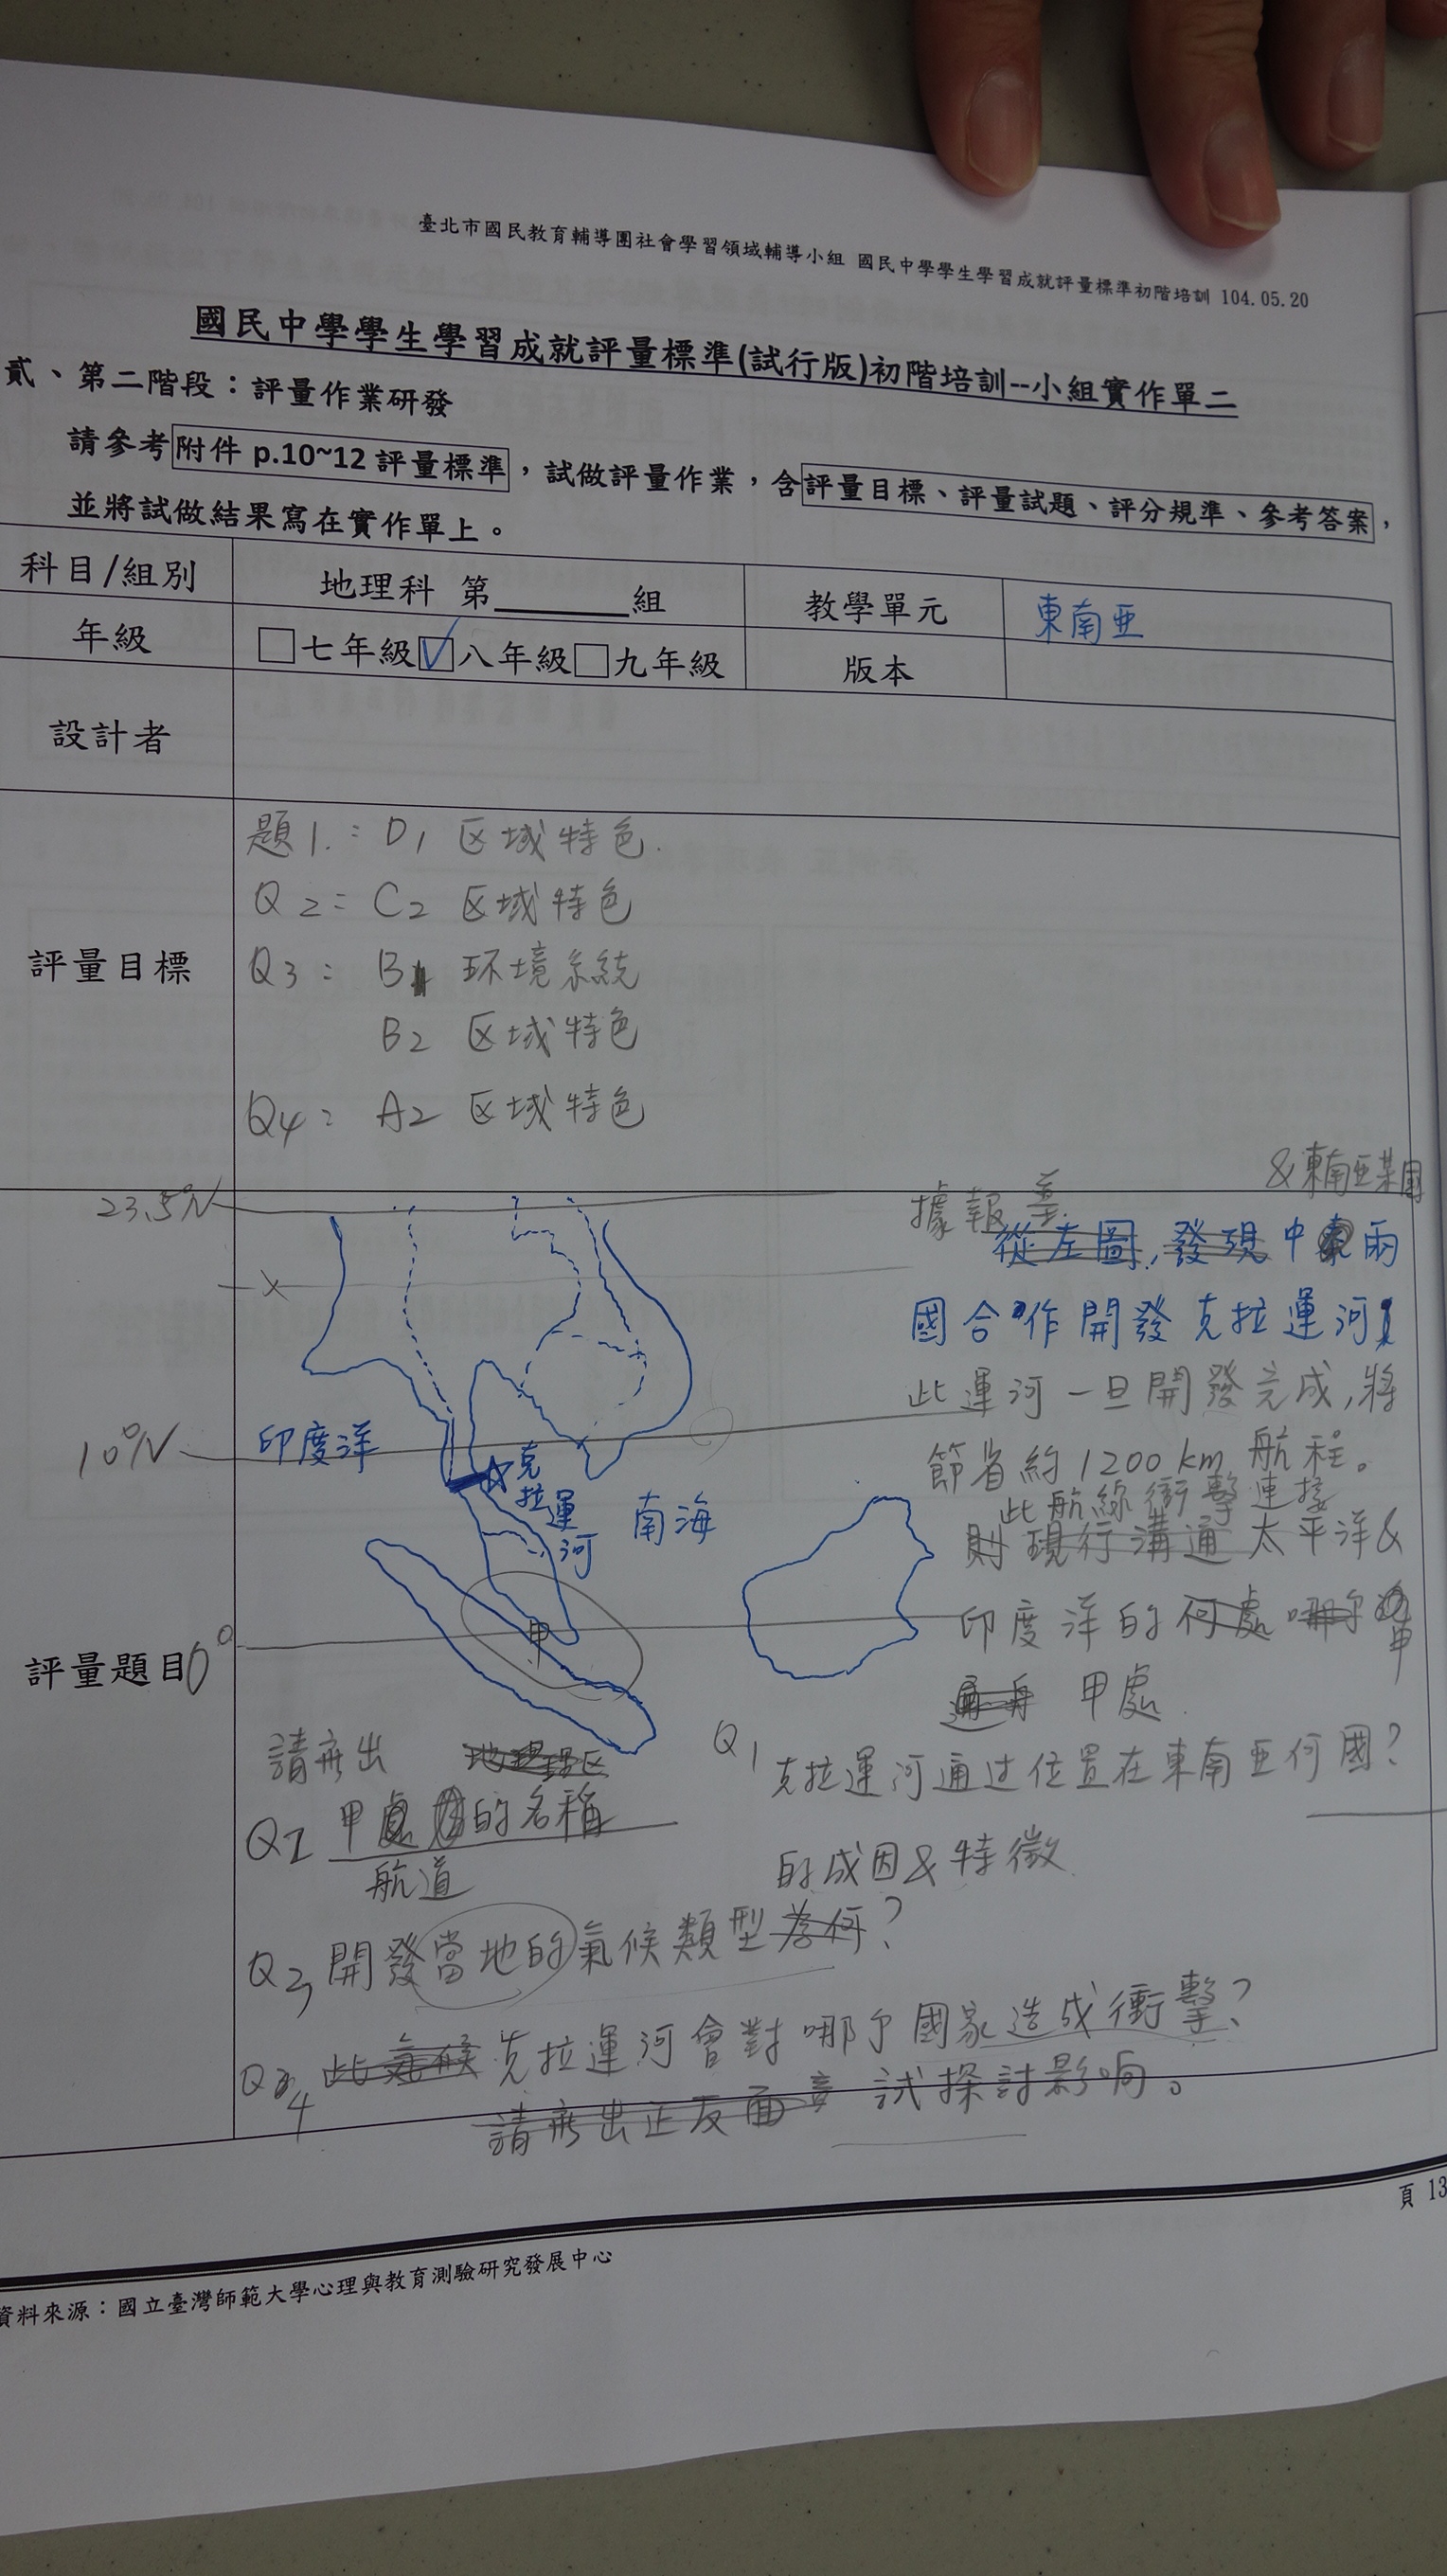 臺北市國民教育輔導團社會學習領域輔導小組 國民中學學生學習成就評量標準初階培訓 104.05.20
國民中學學生學習成就評量標準(試行版)初階培訓--小組實作單二
貳、第二階段：評量作業研發
請參考附件 p.10~12 評量標準，試做評量作業，含評量目標、評量試題、評分規準、參考答案，
並將試做結果寫在實作單上。
科目/組別 地理科 第______組 教學單元 東南亚
年級 □七年級☑八年級□九年級 版本
設計者
評量目標
題1.: D1 区域特色.
Q2: C2 区域特色
Q3: B 环境系統
B2 区域特色
Q4: A2 区域特色
評量題目
23.5°N
10°N
0°
印度洋
克拉運河
南海
甲
&東南亚某國
據報導.
從左圖,發現中 兩
國合作開發克拉運河
此運河一旦開發完成,將
節省約1200km航程。
此航線衝擊連接
則現行溝通太平洋&
印度洋的何處哪 甲
甲處.
Q1 克拉運河通过位置在東南亚何國?
請寫出
Q2 甲處的名稱
航道
的成因&特徵
Q3 開發當地的氣候類型為何?
Q4 此氣候克拉運河會對哪个國家造成衝擊?
請寫出正反面 試探討影响。
頁 13
資料來源：國立臺灣師範大學心理與教育測驗研究發展中心